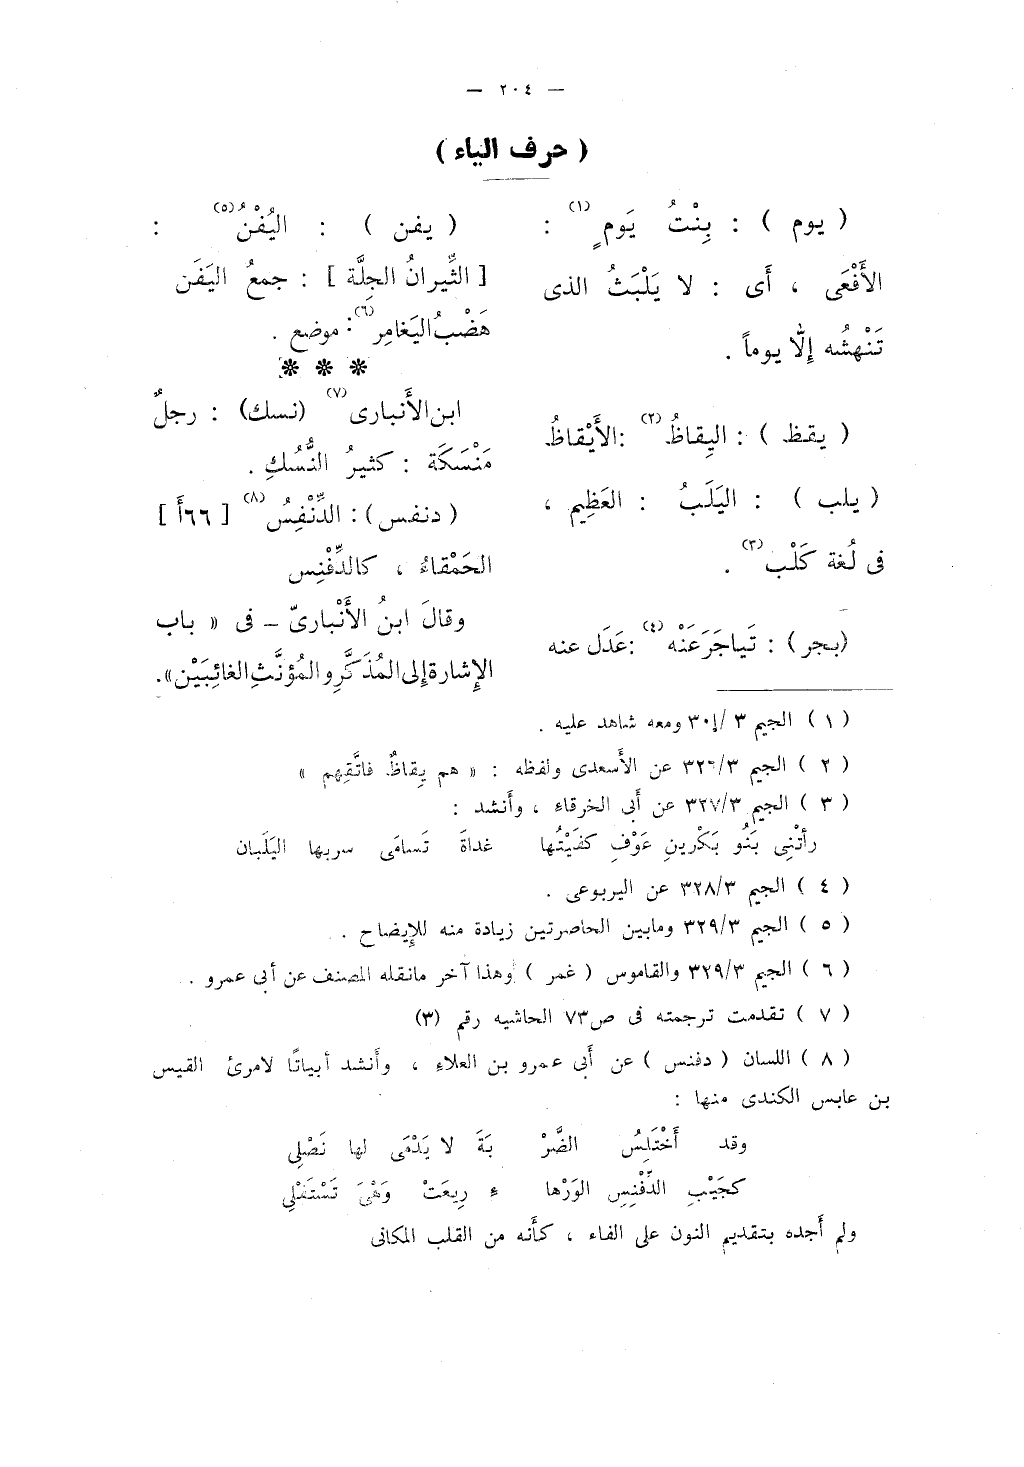 — ٢٠٤ —
( حرف الياء )
( يوم ) : بِنْتُ يَومٍ (١) :
الأَفْعَى ، أَى : لا يَلْبَثُ الذى
تَنْهشُه إِلَّا يوماً .
( يقظ ) : اليِقاظُ (٢) : الأَيْقاظُ
( يلب ) : اليَلَبُ : العَظِيم ،
فى لُغة كَلْب (٣) .
(يجر) : تَياجَرَعَنْه (٤) : عَدَل عنه
( يفن ) : اليُفْنُ (٥) :
[ الثِّيرانُ الجِلَّة ] : جمعُ اليَفَن
هَضْبُ اليَغامِر (٦) : موضع .
* * *
ابن الأَنبارى (٧) (نسك) : رجلٌ
مَنْسَكَة : كثيرُ النُّسُكِ .
( دنفس ) : الدِّنْفِسُ (٨) [ ٦٦أ ]
الحَمْقاءُ ، كالدِّفْنِس
وقالَ ابنُ الأَنْبارىّ – فى « باب
الإِشارة إِلى المُذَكَّرِ والمُؤنَّثِ الغائِبَيْن » .
( ١ ) الجيم ٣ /٣٠١ ومعه شاهد عليه .
( ٢ ) الجيم ٣٢٦/٣ عن الأَسعدى ولفظه : « هم يِقاظٌ فاتَّقِهِم »
( ٣ ) الجيم ٣٢٧/٣ عن أَبى الخرقاء ، وأَنشد :
رأَتْنِى بَنُو بَكْرِبنِ عَوْفِ كفَيْتُها غداةَ تَسامَى سربها اليَلَبان
( ٤ ) الجيم ٣٢٨/٣ عن اليربوعى .
( ٥ ) الجيم ٣٢٩/٣ ومابين الحاصرتين زيادة منه للإِيضاح .
( ٦ ) الجيم ٣٢٩/٣ والقاموس ( غمر ) وهذا آخر مانقله المصنف عن أبى عمرو .
( ٧ ) تقدمت ترجمته فى ص٧٣ الحاشيه رقم (٣)
( ٨ ) اللسان ( دفنس ) عن أَبى عمرو بن العلاء ، وأَنشد أبياتًا لامرئ القيس
بن عابس الكندى منها :
وقد أَخْتَلِسُ الضَّرْ بَةَ لا يَدْمَى لها نَصْلِى
كجَيْبِ الدِّفْنِسِ الوَرْها ءِ رِيعَتْ وَهْىَ تَسْتَفْلِى
ولم أَجده بتقديم النون على الفاء ، كأَنه من القلب المكانى